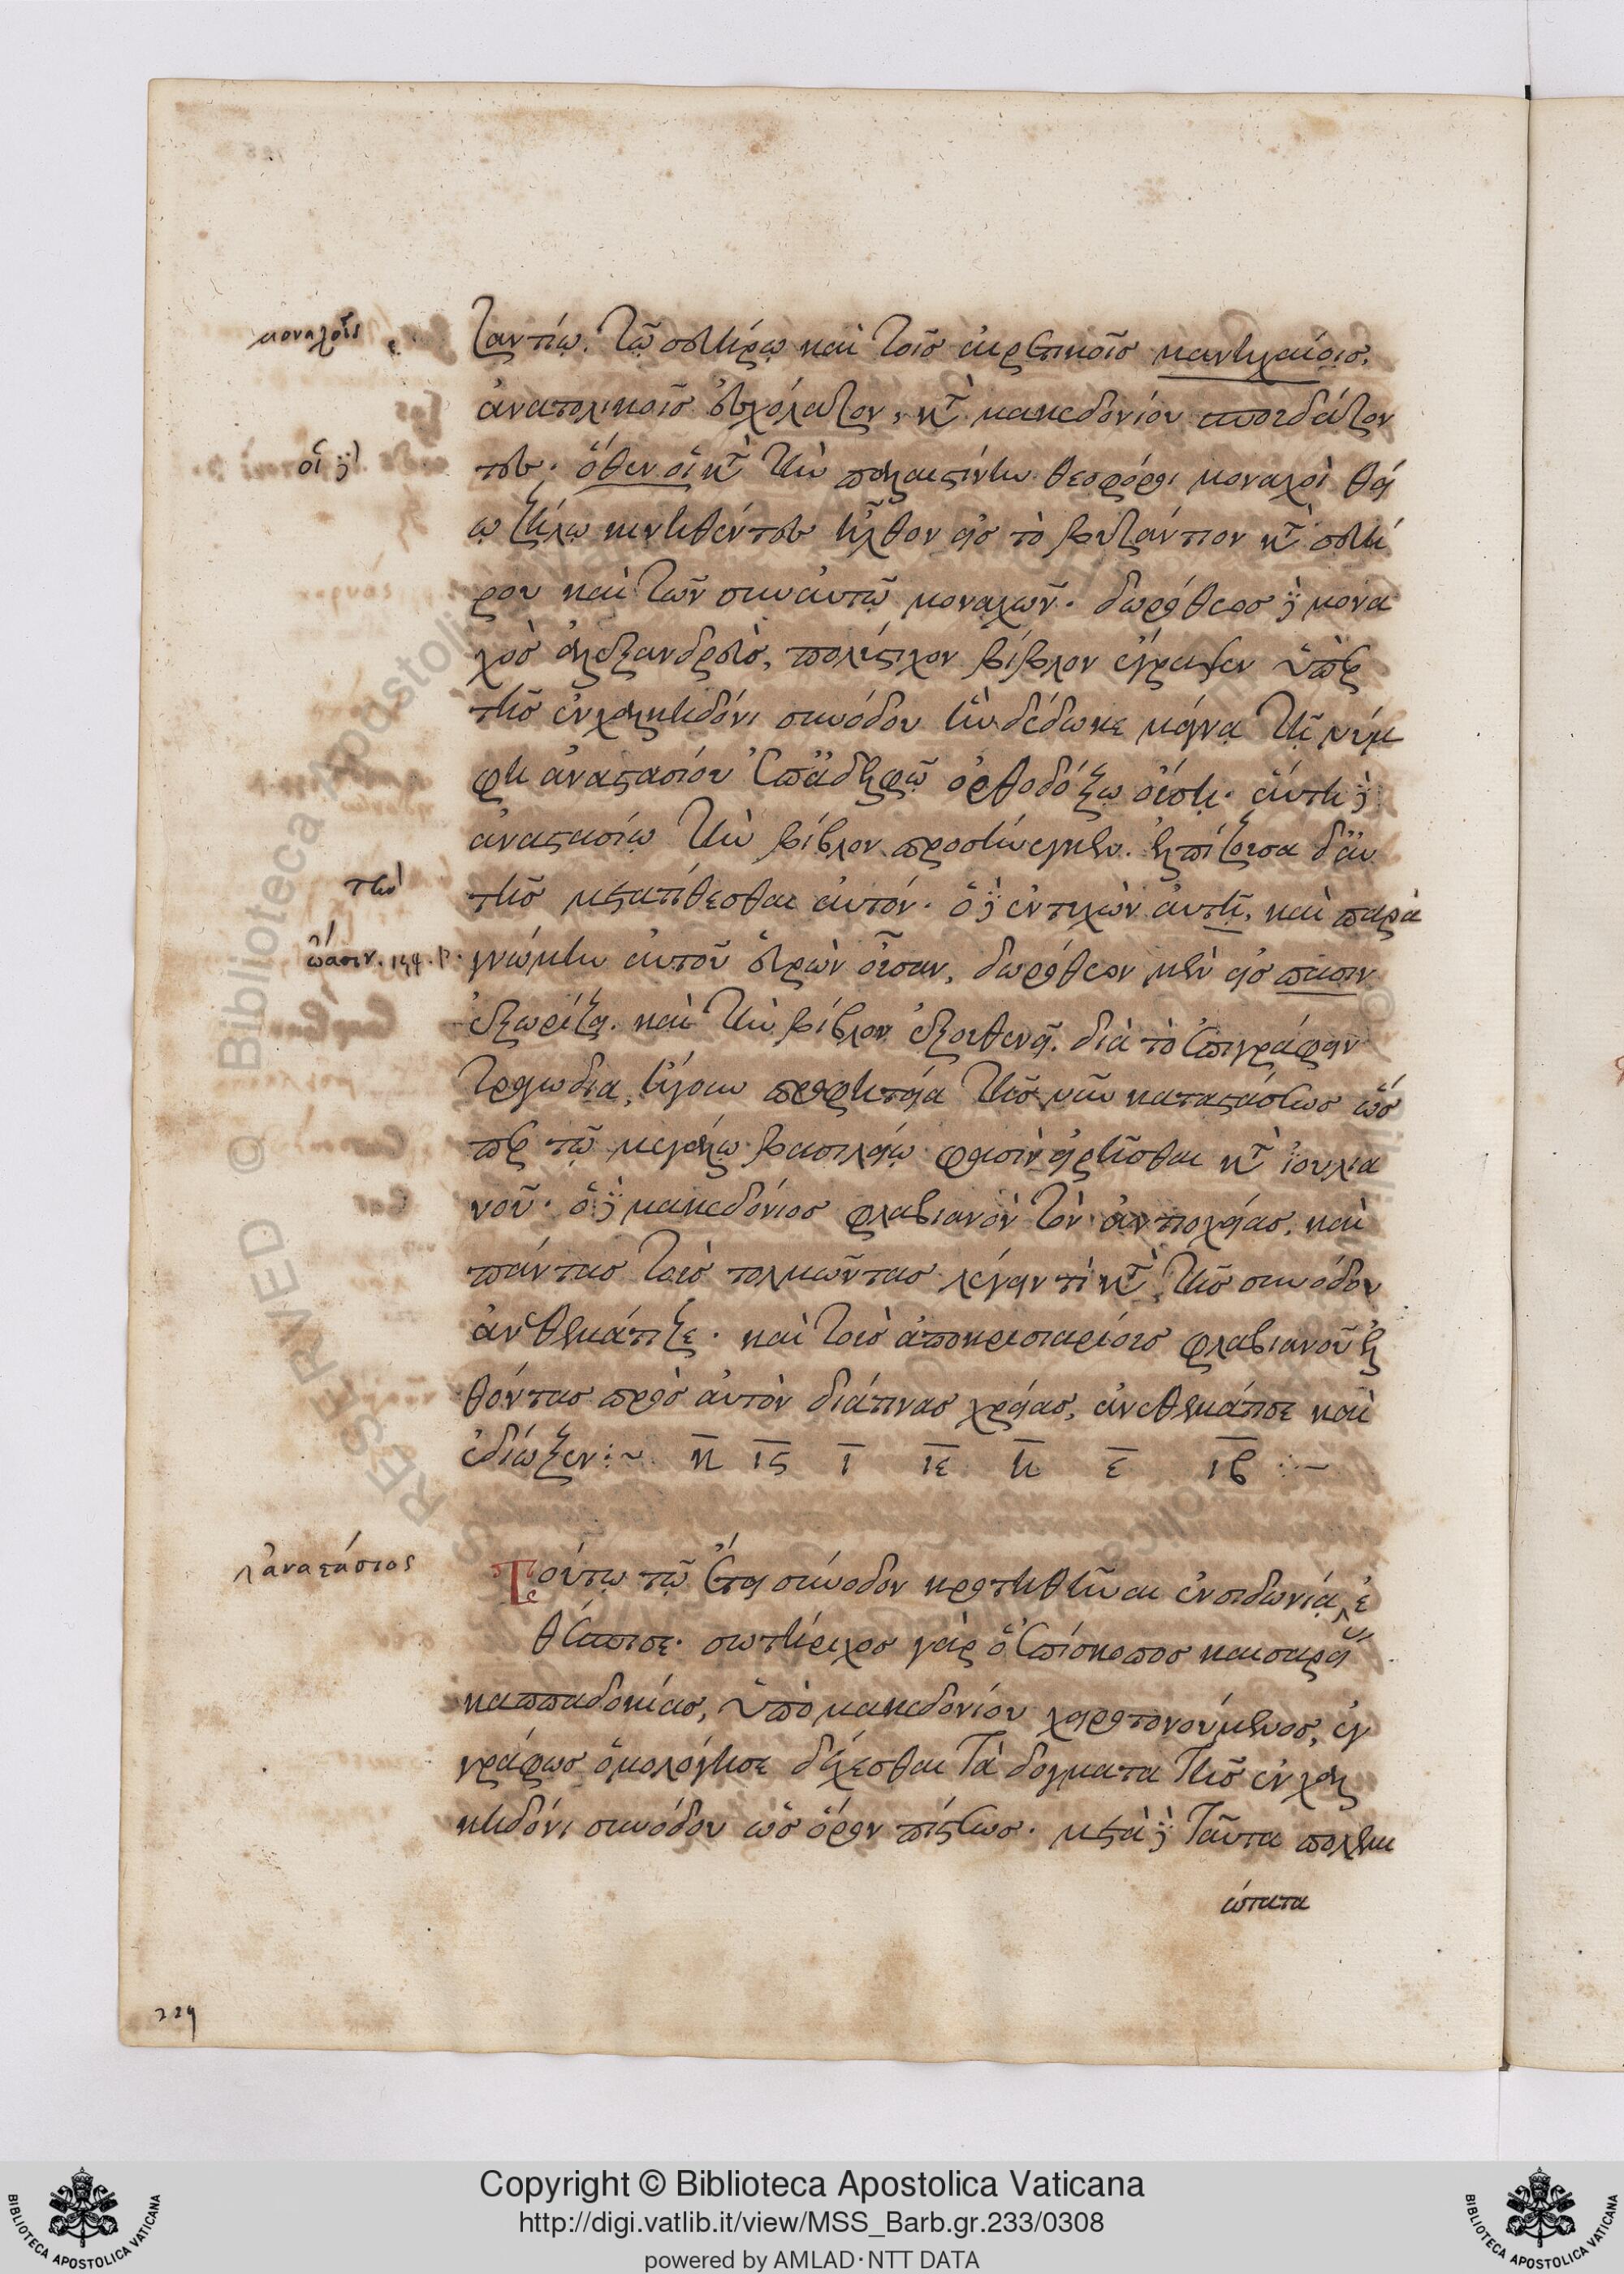 μοναχοῖς
ζαντίῳ. τῷ σευήρῳ καὶ τοῖς αἱρετικοῖς μανιχαίοις.
ἀνατολικοῖς ἐσχόλαζον, κατὰ μακεδονίου σπουδάζον
οἱ δὲ
τες. ὅθεν οἱ κατὰ τὴν παλαιστίνην θεοφόροι μοναχοὶ θεί
ῳ ζήλῳ κινηθέντες ἦλθον εἰς τὸ βυζάντιον κατὰ σευή
ρου καὶ τῶν σὺν αὐτῷ μοναχῶν. δωρόθεος δὲ μονα
χὸς ἀλεξανδρεὺς, πολύστιχον βίβλον ἔγραψεν ὑπὲρ
τῆς ἐν χαλκηδόνι συνόδου ἣν δέδωκε μάγνᾳ τῇ νύμ
φῃ ἀναστασίου ἐπ' ἀδελφῷ ὀρθοδόξῳ οὔσῃ. αὕτη δὲ
ἀναστασίῳ τὴν βίβλον προσήνεγκεν. ἐλπίζουσα δι' αυ
την
τῆς μετατίθεσθαι αὐτόν. ὁ δὲ ἐντυχὼν αὐτῇ, καὶ παρὰ
ὄασιν. 154. β.
γνώμην αὐτοῦ εὑρὼν οὖσαν, δωρόθεον μὲν εἰς πασιν
ἐξωρίζει. καὶ τὴν βίβλον ἐξουθενεῖ. διὰ τὸ ἐπιγράφειν
τραγωδια, ἤγουν προφητεία τῆς νῦν καταστάσεως ὥσ
περ τῷ μεγάλῳ βασιλείῳ φασὶν εἰρῆσθαι κατὰ ἰουλια
νοῦ. ὁ δὲ μακεδόνιος φλαβιανὸν τὸν ἀντιοχείας, καὶ
πάντας τοὺς τολμῶντας λέγειν τὶ κατὰ τῆς συνόδου
ἀνεθεμάτιζε. καὶ τοὺς ἀποκρισιαρίους φλαβιανοῦ ἐλ
θόντας πρὸς αὐτὸν διάτινας χρείας, ἀνεθεμάτισε καὶ
ἐδίωξεν:~ κ ις ι ιε η ε ιβ :~
ἀναστάσιος
Τούτῳ τῷ ἔτει σύνοδον κροτηθῆναι ἐν σιδωνίᾳ ἐ
θέσπισε. σωτήριχος γὰρ ὁ ἐπίσκοπος καισαρεί
καππαδοκίας, ὑπὸ μακεδονίου χειροτονούμενος, ἐγ
γράφως ὁμολόγησε δέχεσθαι τὰ δογματα τῆς ἐν χαλ
κηδόνι συνόδου ὡς ὅρον πίστεως. μετὰ δὲ ταῦτα πολεμι
ώτατα
229
Copyright © Biblioteca Apostolica Vaticana
http://digi.vatlib.it/view/MSS_Barb.gr.233/0308
powered by AMLAD·NTT DATA
BIBLIOTECA APOSTOLICA VATICANA
BIBLIOTECA APOSTOLICA VATICANA